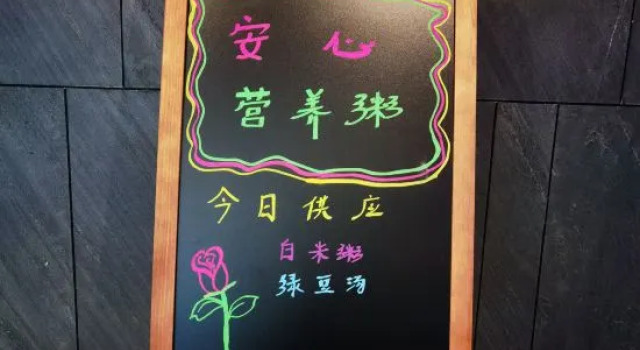 安心
营养粥
今日供应
白米粥
绿豆汤